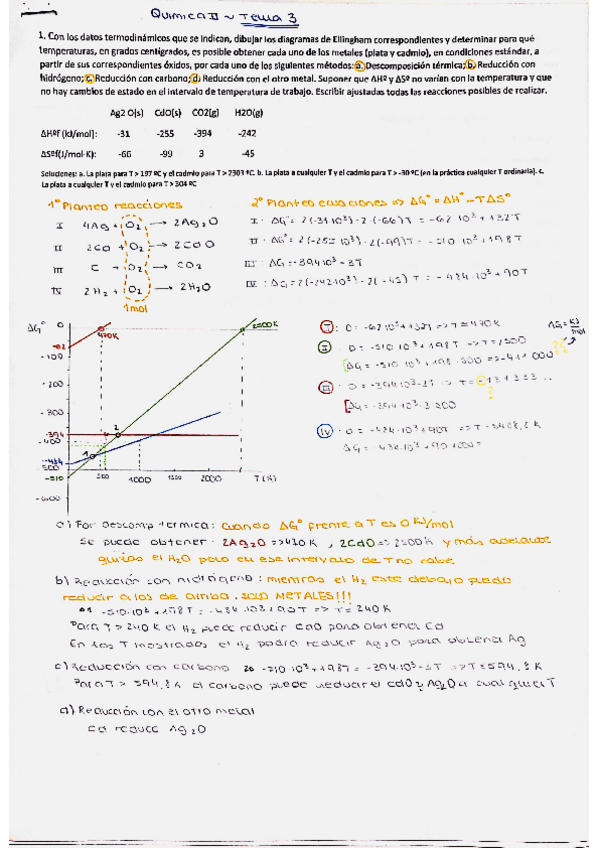 QUIMICA II ~ Tema 3
1. Con los datos termodinámicos que se indican, dibujar los diagramas de Ellingham correspondientes y determinar para qué
temperaturas, en grados centígrados, es posible obtener cada uno de los metales (plata y cadmio), en condiciones estándar, a
partir de sus correspondientes óxidos, por cada uno de los siguientes métodos: a. Descomposición térmica; b. Reducción con
hidrógeno; c. Reducción con carbono; d. Reducción con el otro metal. Suponer que ΔHº y ΔSº no varían con la temperatura y que
no hay cambios de estado en el intervalo de temperatura de trabajo. Escribir ajustadas todas las reacciones posibles de realizar.
Ag2 O(s) CdO(s) CO2(g) H2O(g)
ΔHºf (kJ/mol): -31 -255 -394 -242
ΔSºf(J/mol·K): -66 -99 3 -45
Soluciones: a. La plata para T > 197 ºC y el cadmio para T > 2303 ºC. b. La plata a cualquier T y el cadmio para T > -30 ºC (en la práctica cualquier T ordinaria). c.
La plata a cualquier T y el cadmio para T > 304 ºC
1º Planteo reacciones
2º Planteo ecuaciones => ΔG° = ΔH° - TΔS°
I 4Ag + O2 → 2Ag2O
II 2Cd + O2 → 2CdO
III C + O2 → CO2
IV 2H2 + O2 → 2H2O
1mol
I : ΔG° = 2(-31·10³) - 2·(-66)T = -62·10³ + 132T
II : ΔG° = 2(-255·10³) - 2(-99)T = -510·10³ + 198T
III : ΔG = -394·10³ - 3T
IV : ΔG = 2(-242·10³) - 2(-45)T = -484·10³ + 90T
ΔG° 0
-62
-100
-200
-300
-394
-400
-484
500
-510
-600
470K
2500K
1
2
500 1000 1500 2000 T (K)
ΔG = KJ/mol
I : 0 = -62·10³ + 132T => T = 470K
II : 0 = -510·10³ + 198T => T = 2500
ΔG = -510·10³ + 198·500 => -411000
III : 0 = -394·10³ - 3T => T = -131333...
?
ΔG = -394·10³·3·500
IV : 0 = -484·10³ + 90T => T = K
ΔG = -484·10³ + 90·1000 =
a) Por Descomp termica: cuando ΔG° frente a T es 0 KJ/mol
Se puede obtener · 2Ag2O => 470K , 2CdO => 2500K y más adelante
quizás el H2O pero en ese intervalo de T no cabe
b) Reducción con hidrógeno : mientras el H2 este debajo puede
reducir a los de arriba. SOLO METALES!!!
-510·10³ + 198T = -484·10³ + 90T => T = 240K
Para T > 240 K el H2 puede reducir CdO para obtener Cd
En las T mostradas el H2 podrá reducir Ag2O para obtener Ag
c) Reducción con carbono 2º -510·10³ + 198T = -394·10³ - 3T => T = 594,8 K
Para T > 594,8K el carbono puede reducir el CdO y Ag2O a cualquier T
d) Reducción con el otro metal
Cd reduce Ag2O